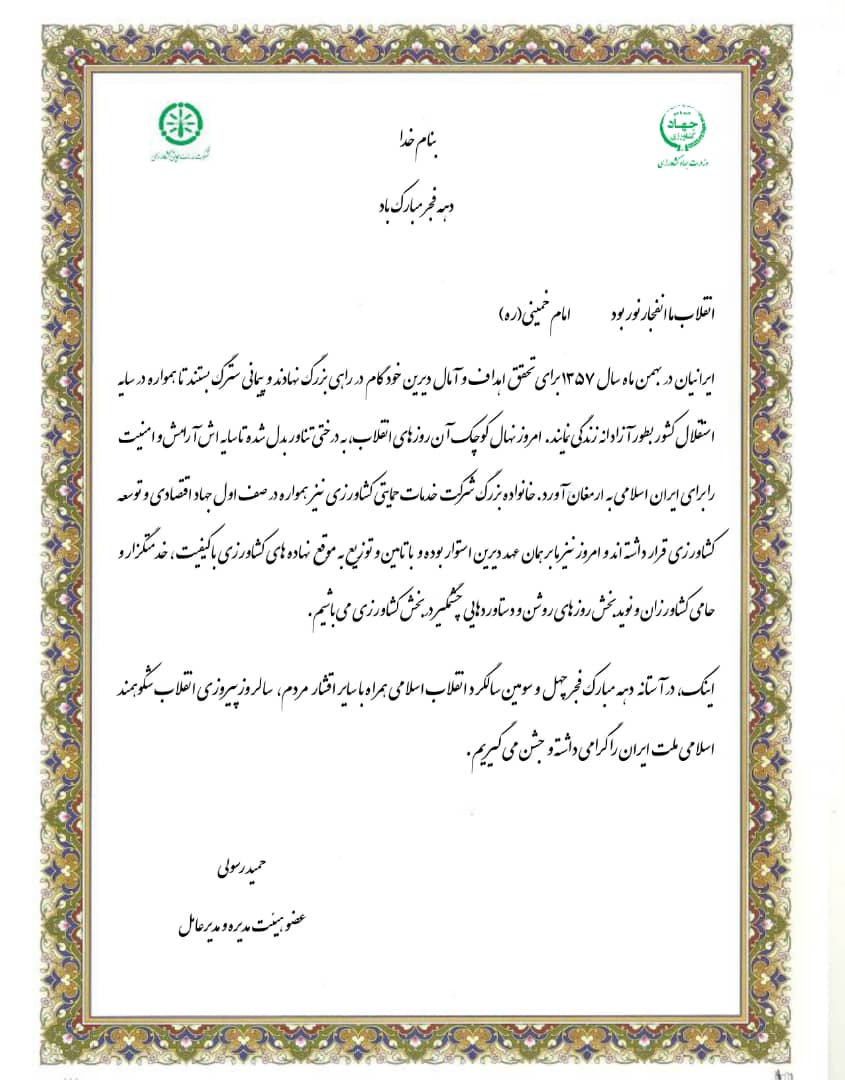 بنام خدا
جهاد
کشاورزی
وزارت جهاد کشاورزی
دهه فجر مبارک باد
انقلاب ما انفجار نور بود امام خمینی(ره)
ایرانیان در بهمن ماه سال ۱۳۵۷ برای تحقق اهداف و آمال دیرین خود گام در راهی بزرگ نهادند و پیمانی سترگ بستند تا همواره در سایه
استقلال کشور بطور آزادانه زندگی نمایند. امروز نهال کوچک آن روزهای انقلاب، به درختی تناور بدل شده تا سایه اش آرامش و امنیت
را برای ایران اسلامی به ارمغان آورد. خانواده بزرگ شرکت خدمات حمایتی کشاورزی نیز همواره در صف اول جهاد اقتصادی و توسعه
کشاورزی قرار داشته اند و امروز نیز ما بر همان عهد دیرین استوار بوده و با تامین و توزیع به موقع نهاده های کشاورزی باکیفیت، خدمتگزار و
حامی کشاورزان و نوید بخش روزهای روشن و دستاوردهایی چشمگیر در بخش کشاورزی می باشیم.
اینک، در آستانه دهه مبارک فجر چهل و سومین سالگرد انقلاب اسلامی همراه با سایر اقشار مردم، سالروز پیروزی انقلاب شکوهمند
اسلامی ملت ایران را گرامی داشته و جشن می گیریم.
حمید رسولی
عضو هیئت مدیره و مدیرعامل